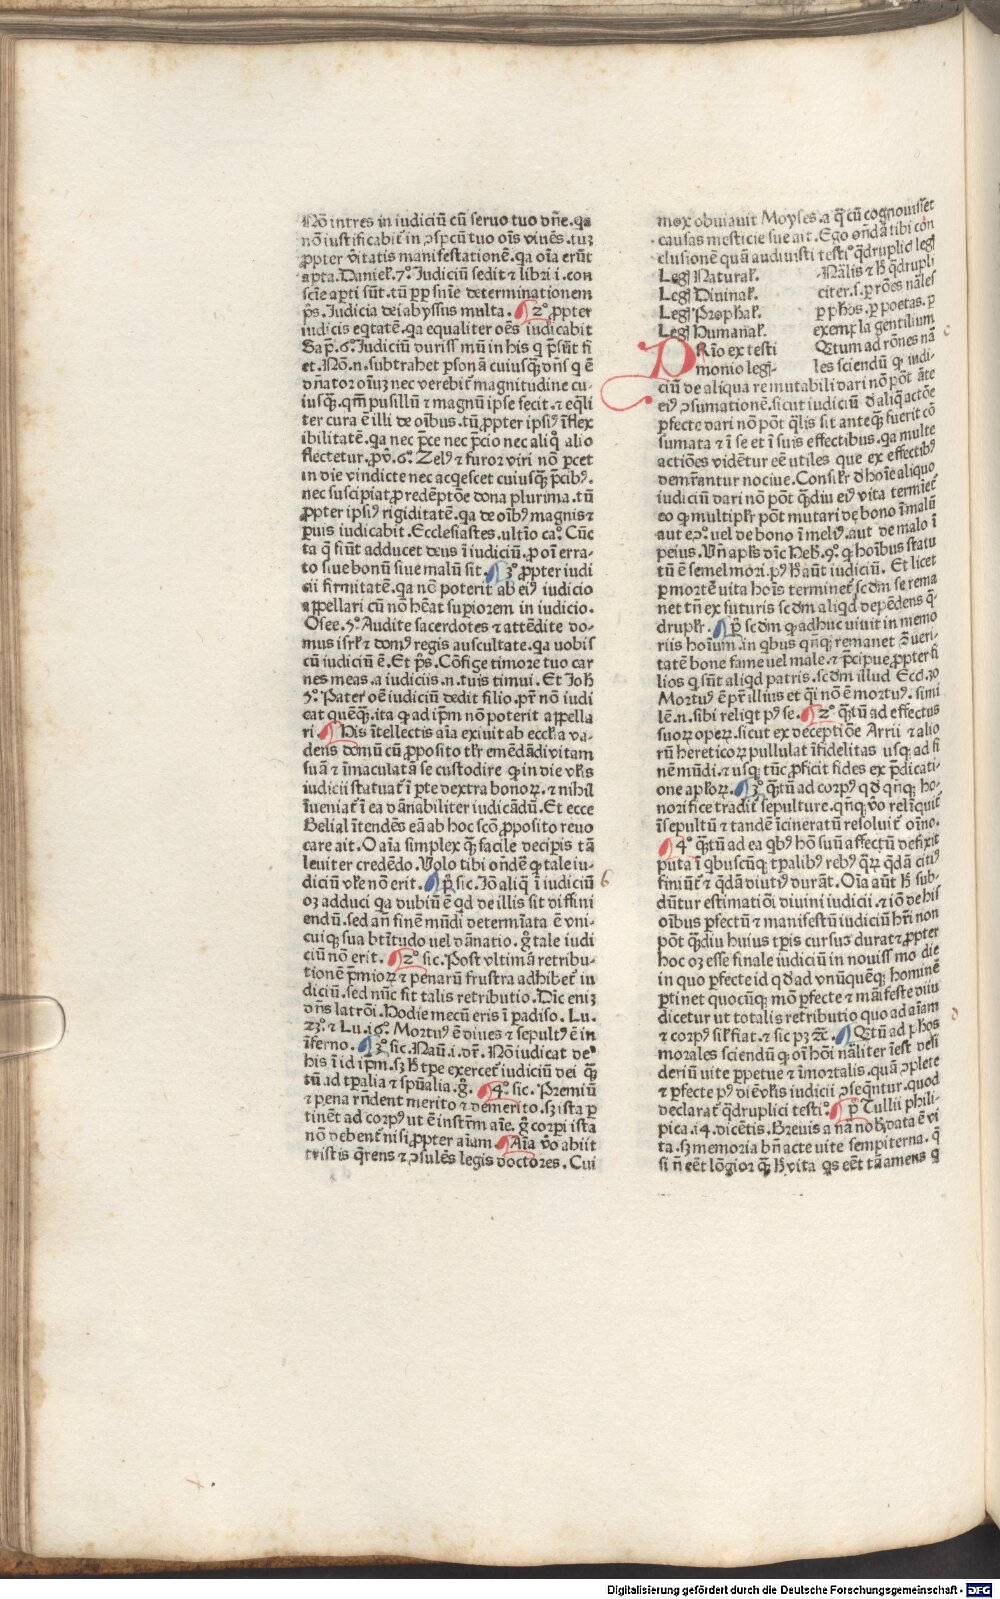 Nō intres in iudiciū cū seruo tuo dn̄e. qa
nō iustificabit̄ in ↄspcū tuo oīs viuēs. tuȝ
ꝓpter v̄itatis manifestationē. qa oīa erūt
apta. Daniel. 7º. Iudiciū sedit ⁊ libri .i. con
scīe apti sūt. tū ꝓp snīe determinationem
p̄s. Iudicia dei abyssus multa. ¶ 2º ꝓpter
iudicis eq̄tatē. qa equaliter oēs iudicabit
Sap̄. 6º Iudiciū duriss mū in his q̄ p̄sūt fi
et. Nō .n. subtrahet ꝑsonā cuiusqꝫ dn̄s q̄ ē
dn̄atoꝛ oīuꝫ nec verebit̄ magnitudinē cu-
iusqꝫ. qm̄ pusillū ⁊ magnū ipse fecit. ⁊ eq̄li
ter cura ē illi de oībus. tū ꝓpter ipsiꝰ īflex
ibilitatē. qa nec p̄ce nec p̄cio nec aliq̄ alio
flectetur. ꝓv̄. 6º. Zelꝰ ⁊ furor viri nō ꝑcet
in die vindicte nec acqescet cuiusqꝫ p̄cibꝰ.
nec suscipiat ꝓ redēptōe dona plurima. tū
ꝓpter ipsiꝰ rigiditatē. qa de oībꝰ magnis ⁊
ꝑuis iudicabit. Ecclesiastes. ultīo caº. Cūc
ta q̄ fiūt adducet deus ī iudiciū. ꝓ oī erra-
to siue bonū siue malū sit. ¶ 3º ꝓpter iudi
cii firmitatē. qa nō poterit ab eiꝰ iudicio
appellari cū nō hēat supiorem in iudicio.
Osee. 5º. Audite sacerdotes ⁊ attēdite do-
mus isrl̄ ⁊ domꝰ regis auscultate. qa uobis
cū iudiciū ē. Et p̄s. Cōfige timore tuo car
nes meas. a iudiciis .n. tuis timui. Et Ioh̄
5º. Pater oē iudiciū dedit filio. pr̄ nō iudi
cat quēqꝫ. ita ꝙ ad ip̄m nō poterit appella
ri. ¶ His ītellectis aīa exiuit ab eccl̄ia va-
dens domū cū ꝓposito tl̄r emēdādi vitam
suā ⁊ īmaculatā se custodire ꝙ in die vl̄is
iudicii statuat̄ ī ꝑte dextra bonoꝝ. ⁊ nihil
īueniat̄ ī ea dānabiliter iudicādū. Et ecce
Belial ītendēs eā ab hoc scō ꝓposito reuo
care ait. O aīa simplex qꝫ facile decipis tā
leuiter credēdo. Volo tibi on̄dē ꝙ tale iu-
diciū vl̄e nō erit. ¶ p̄ sic. Iō aliq̄ ī iudiciū
oꝫ adduci qa dubiū ē qd de illis sit diffini
endū. sed an̄ finē mūdi determīata ē vni-
cuiqꝫ sua btītudo uel dānatio. g̊ tale iudi
ciū nō erit. ¶ 2º sic. Post vltimā retribu-
tionē p̄mioꝝ ⁊ penarū frustra adhibet̄ iu
diciū. sed nūc fit talis retributio. Dīc eniꝫ
dn̄s latrōi. Hodie mecū eris ī padiso. Lu.
23º. ⁊ Lu. i6º. Mortuꝰ ē diues ⁊ sepultꝰ ē in
īferno. ¶ 3º sic. Naū. i. dr̄. Nō iudicat deꝰ
bis ī id ip̄m. sꝫ h̄ tp̄e exercet̄ iudiciū dei qꝫ
tū ad tp̄alia ⁊ spūalia. g̊. ¶ 4º sic. Premiū
⁊ pena rn̄dent merito ⁊ demerito. sꝫ ista ꝑ
tinēt ad corpꝰ ut ē instr̄m aīe. g̊ corpi ista
nō debent̄ nisi ꝓpter aīam. ¶ Aīa v̄o abiit
tristis q̄rens ⁊ ↄsulēs legis doctores. Cui
6
mox obuiauit Moyses. a q̄ cū cognouisset
causas mesticie sue ait. Ego on̄dā tibi con
clusionē quā audiuisti testiº q̄druplic̄ legꝭ
Legꝭ Natural̄.
Legꝭ Diuinal̄.
Legꝭ Prophal̄.
Legꝭ Humanal̄.
Nālis ⁊ h̄ q̄drupli
citer. s. ꝑ rōes nāles
ꝑ phos. ꝑ poetas. ꝑ
exempla gentilium
PRīo ex testi
monio legꝭ-
Q̄tum ad rōnes nā
les sciendū ꝙ iudi-
ciū de aliqua re mutabili dari nō pōt āte
eiꝰ ↄsumationē. sicut iudiciū d̄ aliqa actōe
ꝑfecte dari nō pōt q̄lis sit anteqꝫ fuerit cō
sumata ⁊ ī se et ī suis effectibus. qa multe
actiōes vidētur eē utiles que ex effectibꝰ
demr̄antur nociue. Consil̄r d̄ hoīe aliquo
iudiciū dari nō pōt qꝫdiu eiꝰ vita termiet̄
eo ꝙ multipl̄r pōt mutari de bono ī malū
aut eↄº. uel de bono ī meliꝰ. aut de malo ī
peius. Vn̄ apl̄s dīc Heb̄. 9º. ꝙ hoībus statu
tū ē semel mori. pꝰ h̄ aūt iudiciū. Et licet
ꝑ mortē vita hoīs terminet̄ scd̄m se rema
net tn̄ ex futuris scd̄m aliqd depēdens q̄-
drupl̄r. ¶ p̄ scd̄m ꝙ adhuc viuit in memo
riis hoīum. in qbus qn̄qꝫ remanet 3̄ ueri-
tatē bone fame uel male. ⁊ p̄cipue ꝓpter fi
lios q̄ sūt aliqd patris. scd̄m illud Eccl. 30
Mortuꝰ ē pr̄ illius et q̄i nō ē mortuꝰ. simi
lē .n. sibi reliqt pꝰ se. ¶ 2º q̄tū ad effectus
suoꝝ opeꝝ. sicut ex deceptiōe Arrii ⁊ alio
rū hereticoꝝ pullulat īfidelitas usqꝫ ad fi
nē mūdi. ⁊ usqꝫ tūc ꝓficit fides ex p̄dicati-
one apl̄oꝝ. ¶ 3º q̄tū ad corpꝰ qd qn̄qꝫ ho-
norifice tradit̄ sepulture. qn̄qꝫ v̄o relīquit̄
īsepultū ⁊ tandē īcineratū resoluit̄ oīno.
¶ 4º q̄tū ad ea qbꝰ hō suū affectū defixit
puta ī qbuscūqꝫ tp̄alibꝰ rebꝰ qꝝ q̄dā citiꝰ
finiūt̄ ⁊ q̄dā diutiꝰ durāt. Oīa aūt h̄ sub-
dūtur estimatiōi diuini iudicii. ⁊ iō de his
oībus ꝑfectū ⁊ manifestū iudiciū hr̄i non
pōt qꝫdiu huius tp̄is cursus durat ⁊ ꝓpter
hoc oꝫ esse finale iudiciū in nouiss mo die
in quo ꝑfecte id qd ad vnūquēqꝫ hominē
ꝑtinet quocūqꝫ mō ꝑfecte ⁊ māifeste diiu
dicetur ut totalis retributio quo ad aīam
⁊ corpꝰ sil̄ fiat. ⁊ sic pꝫ ⁊c̄. ¶ Q̄tū ad phos
morales sciendū ꝙ oī hōi nāliter īest desi
deriū vite ꝑpetue ⁊ īmortalis. quā ↄplete
⁊ ꝑfecte pꝰ diē vl̄is iudicii ↄseqntur. quod
declarat̄ q̄druplici testiº. ¶ p̄ Tullii phili-
pica. i4. dicētis. Breuis a nā nob̄ data ē vi
ta. sꝫ memoria bn̄ acte vite sempiterna. q̄
si n̄ eēt lōgior qꝫ h̄ vita qs eēt tā amens q
c
d
Digitalisierung gefördert durch die Deutsche Forschungsgemeinschaft - DFG